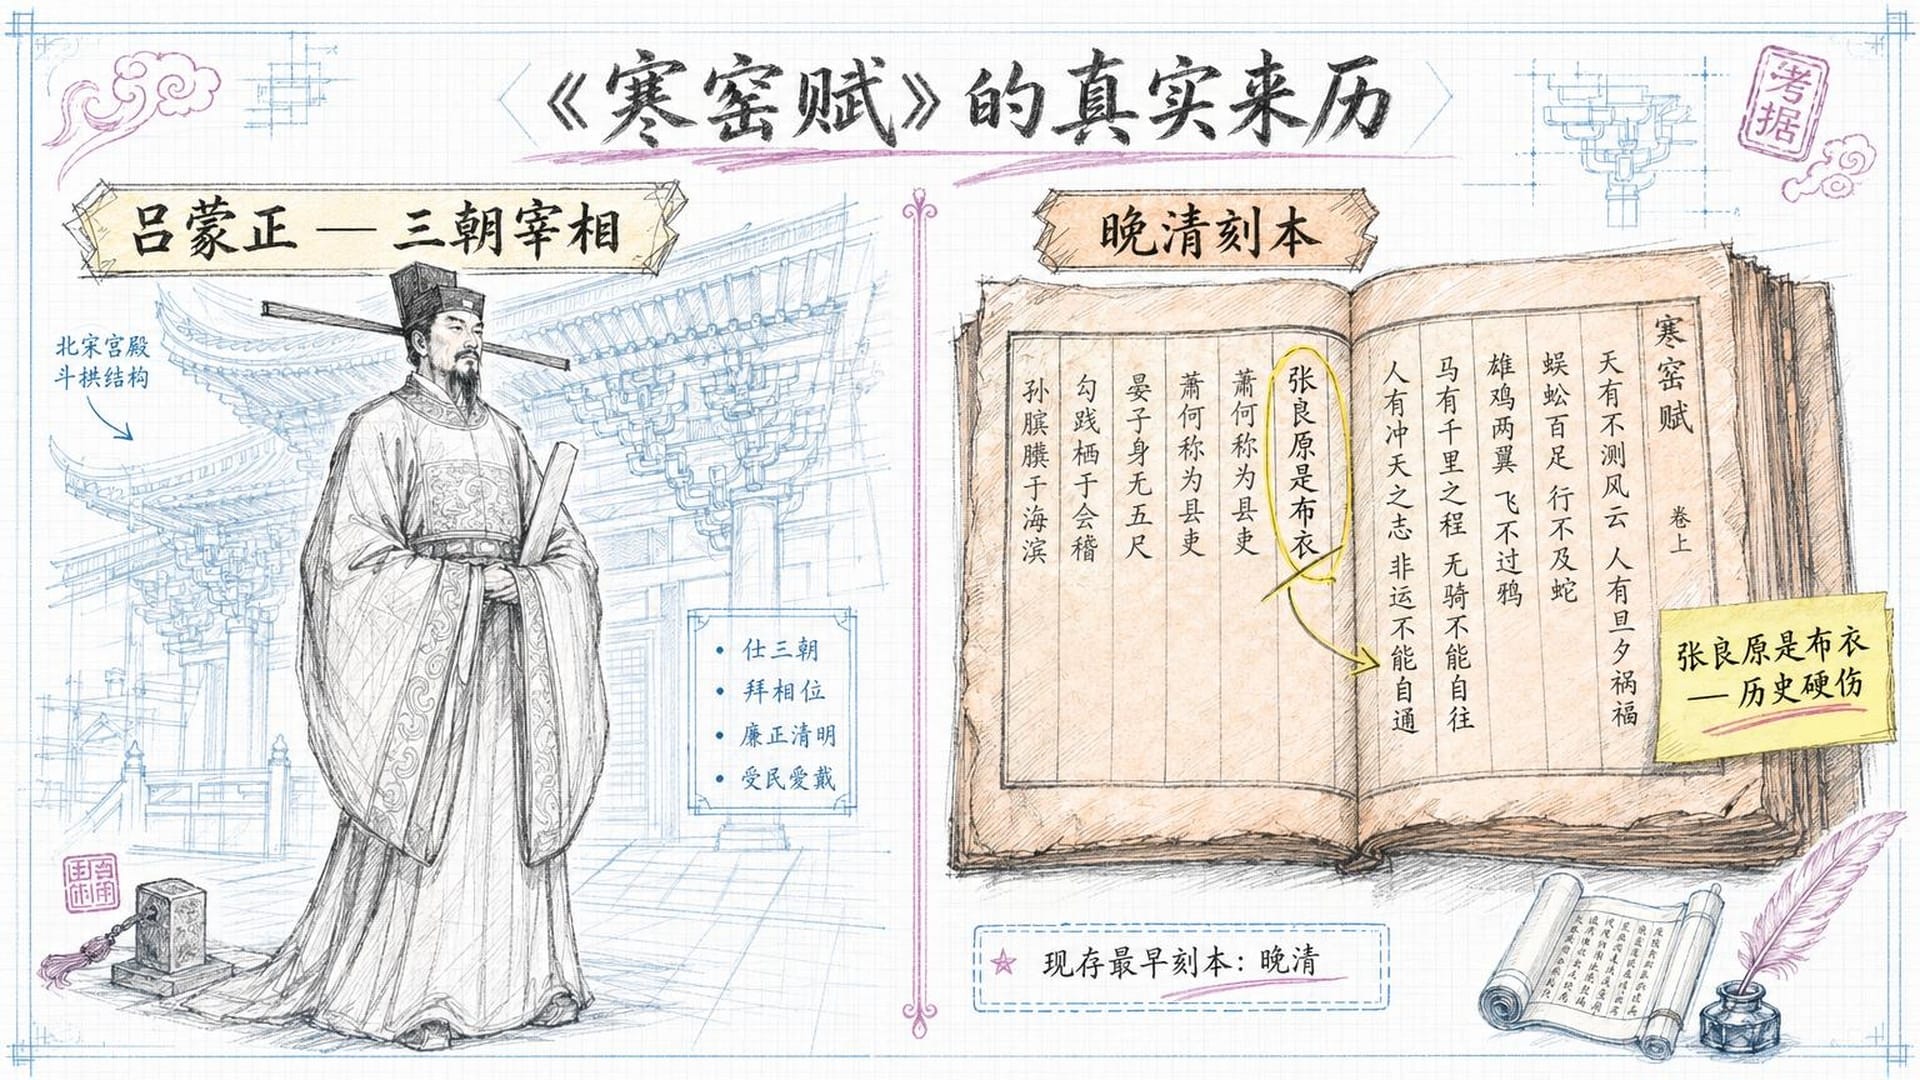 《寒窑赋》的真实来历
考据
吕蒙正 — 三朝宰相
北宋宫殿
斗拱结构
• 仕三朝
• 拜相位
• 廉正清明
• 受民愛戴
晚清刻本
寒窑赋 卷上
天有不测风云 人有旦夕祸福
蜈蚣百足 行不及蛇
雄鸡两翼 飞不过鸦
马有千里之程 无骑不能自往
人有冲天之志 非运不能自通
张良原是布衣
萧何称为县吏
萧何称为县吏
晏子身无五尺
勾践栖于会稽
孙膑膑于海滨
张良原是布衣
— 历史硬伤
现存最早刻本：晚清